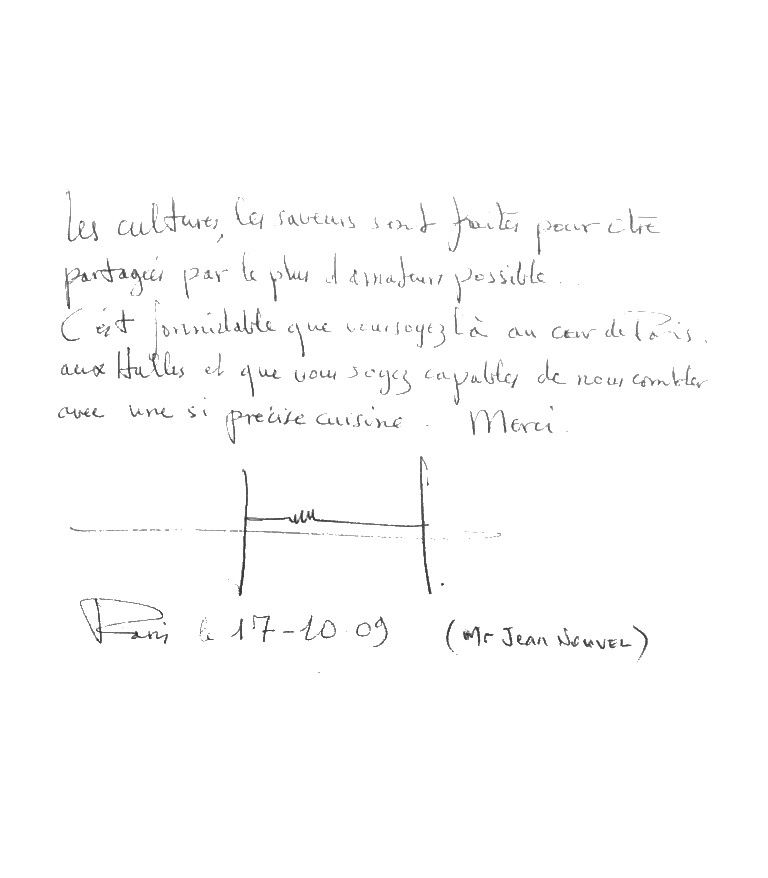 Les cultures, les saveurs sont faites pour être
partagées par le plus d'amateurs possible...
C'est formidable que vous soyez là au cœur de Paris,
aux Halles et que vous soyez capables de nous combler
avec une si précise cuisine. Merci.
Paris le 17-10.09 (Mr Jean NOUVEL)